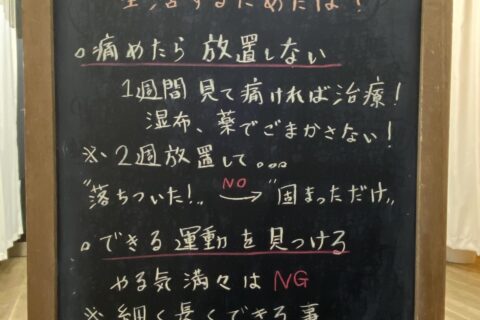 生活するためには!
○痛めたら 放置しない
1週間 見て 痛ければ治療!
湿布、薬でごまかさない!
※2週放置して。。。
"落ちついた!" NO → "固まっただけ"
○できる運動を見つける
やる気満々は NG
※細く長くできる事